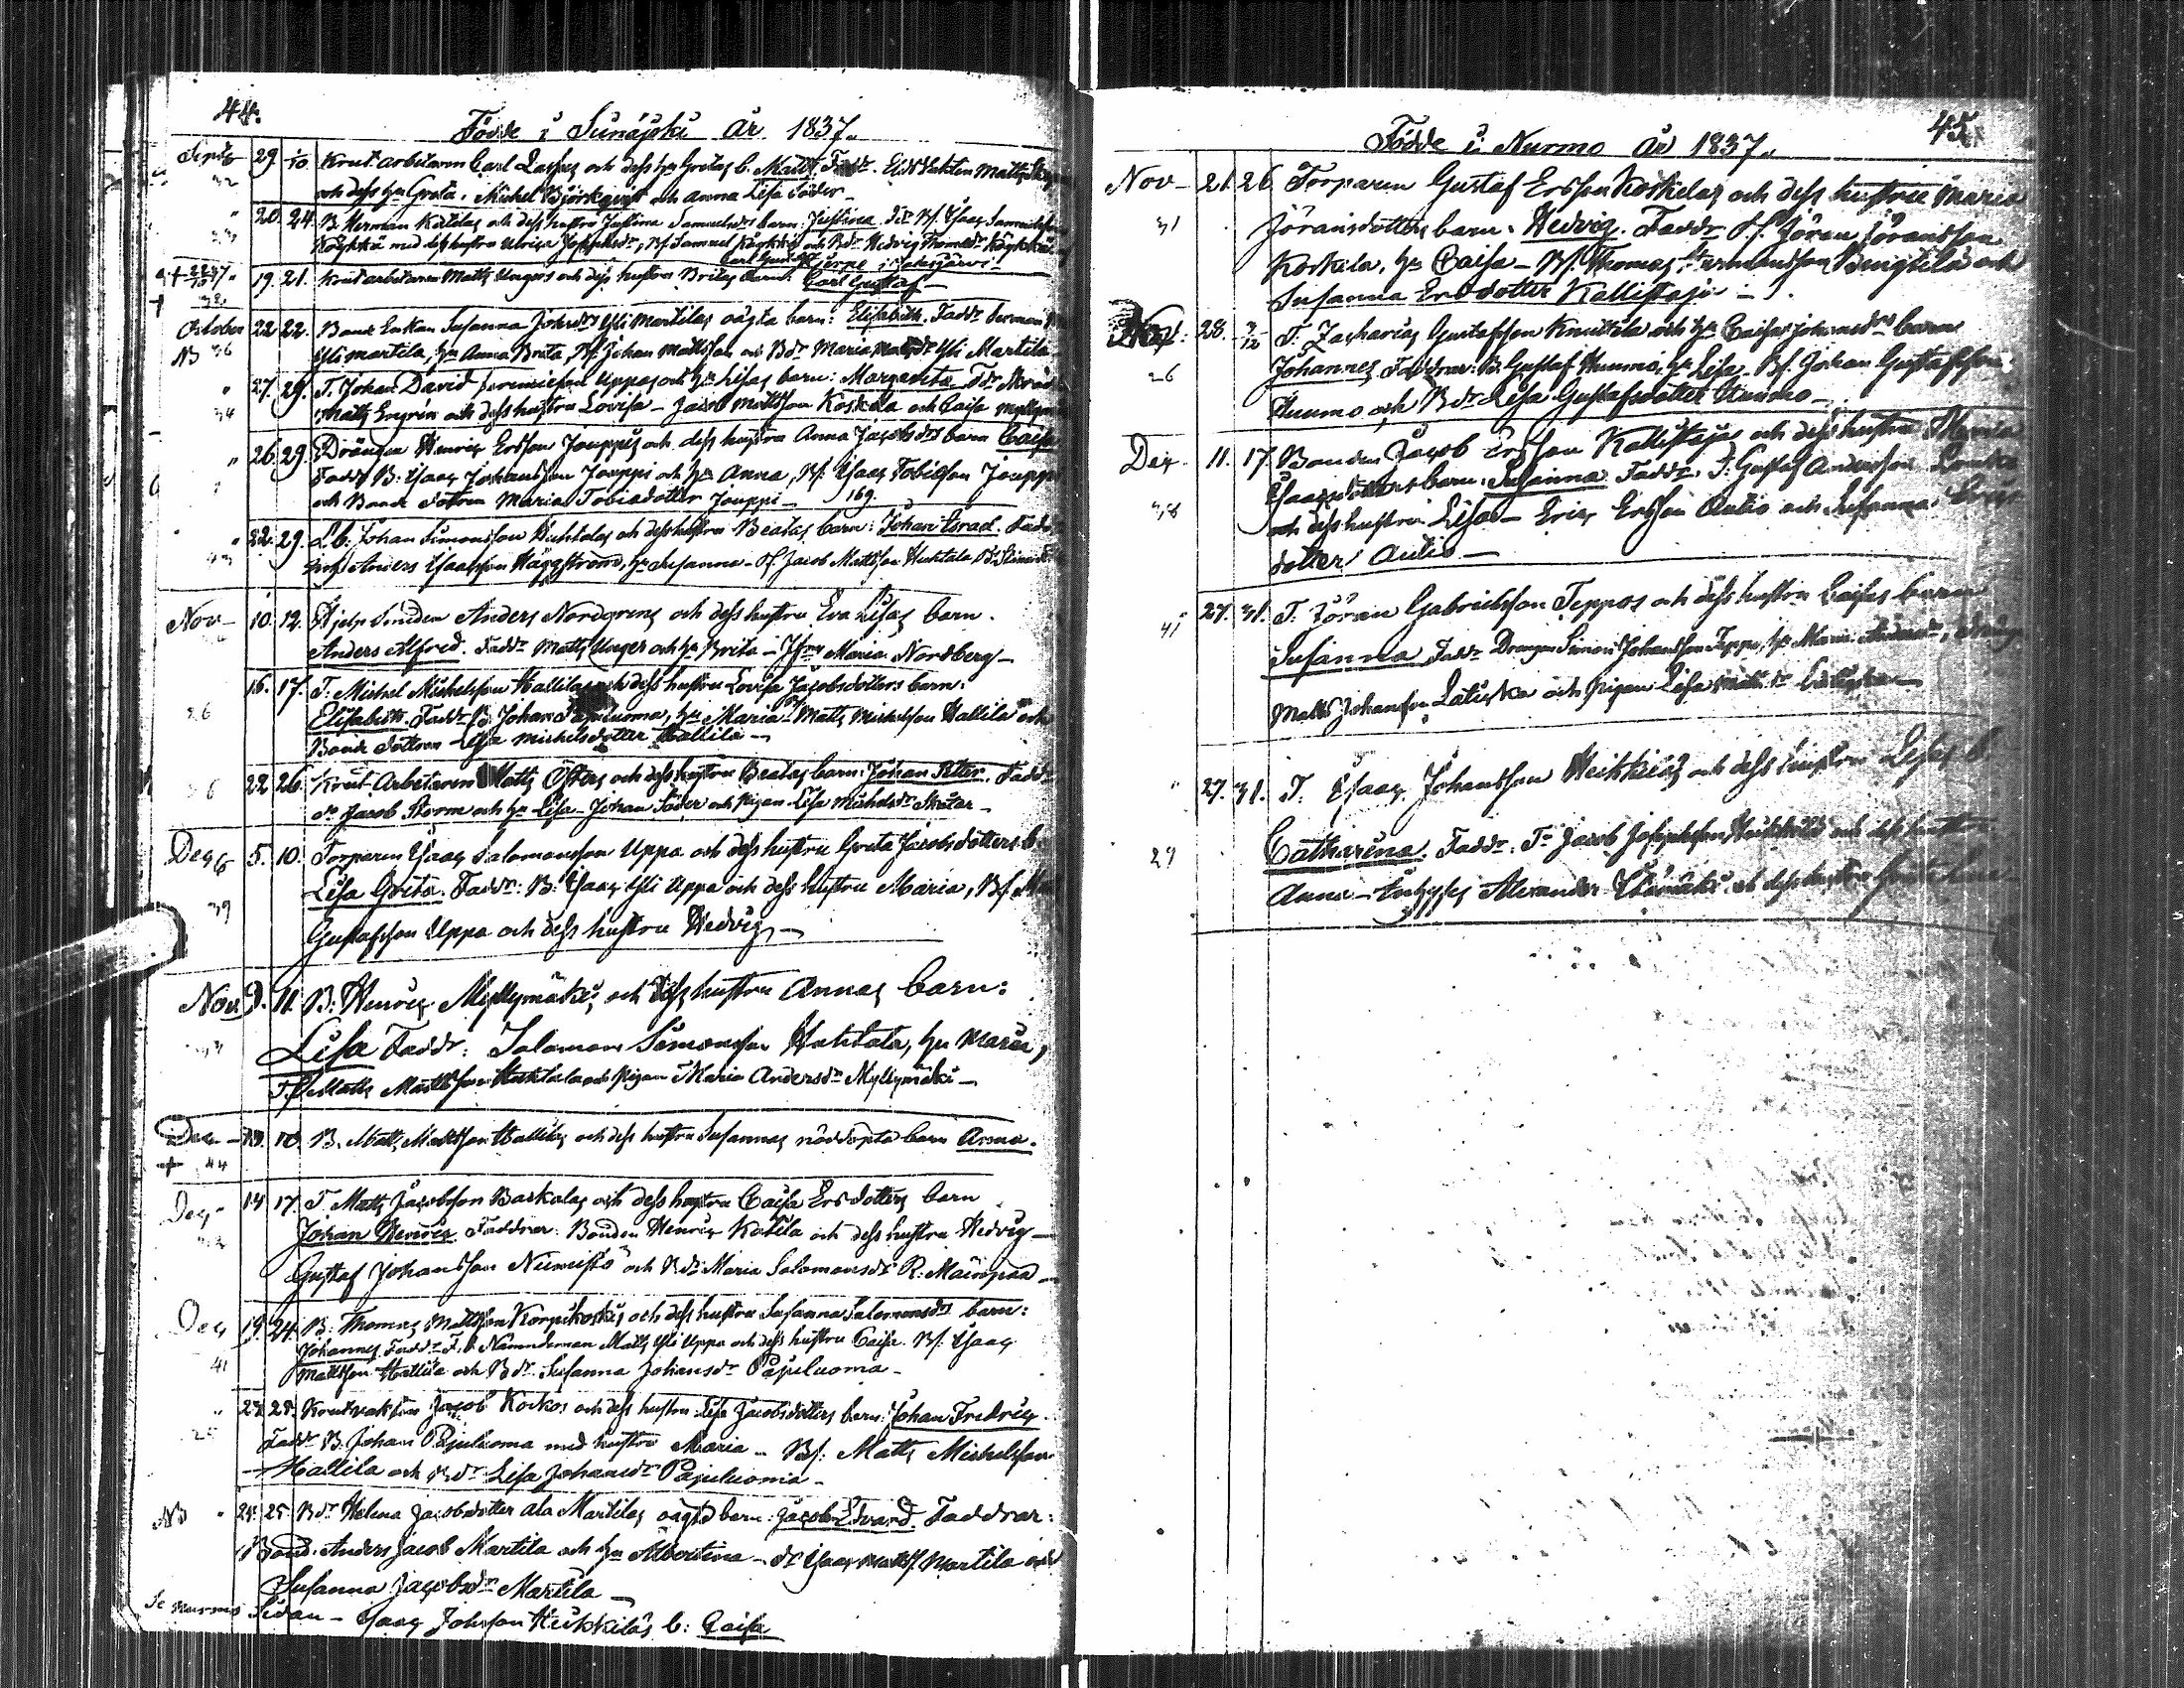 44.
Födde i Seinäjoki år 1837.
Septb 29 1/10 Krut arbetaren Carl och dess hu Gretas b. Matts Fadd. Matts
32 och dess hu Greta. Michel Björkqvist och Anna Lisa Söder
" 20. 24. B. Herman Katilas och dess hustru Justina Samuelsdrs barn: Justina. Fdr Bs. Isaac Samuelsson
33 med dess hustru Ulrica Josephsdr, Bs Samuel och Bdr Hedvig Thomædr
19. 21. Krut arbetaren Matts Ungers och dess hustru Britas barn: Carl Gustaf
October 22 22. Bonde Enkan Susanna Johsdrs Yli Martilas oägta barn: Elisabeth. Faddr Herman
NB 36 Yli martila, hu Anna Brita, Bs. Johan Mattsson och Bdr Maria Matsdr Yli Martila
" 27. 29. T. Johan David Jeremiæson Uppas och hu Lisas barn: Margareta Fdr
34 Matts Engrén och dess hustru Lovisa - Jacob Mattsson Koskela och Caisa
" 26. 29. Drängen Henric Ersson Jouppis och dess hustru Anna Jacobsdrs barn Caisa
Fadd B. Isaac Johansson Jouppi och hu Anna, Bs. Isaac Tobiæson Jouppi
och Bonde dottren Maria Tobiadotter Jouppi - 169.
" 22. 29. Johan Simonsson Huhtalas och dess hustru Beatas barn: Johan Esrad. Fadd
43 Anders Isaacsson Häggström, hu Susanna - Jacob Mattsson Huhtala
Nov - 10. 12. Hjelp Smeden Anders Nordgrens och dess hustru Eva Lisas barn.
Anders Alfred. Faddr Matts Unger och hu Brita - Jfru Maria Nordberg -
16. 17. T. Michel Michelsson Hallilas och dess hustru Lovisa Jacobsdotters barn:
36 Elisabeth. Faddr B. Johan Pajuluoma, hu Maria - Bs Matts Michelsson Hallila och
Bonde dottren Lisa Michelsdotter Hallila -
22 26. Krut Arbetaren Matts Östers och dess hustru Beatas barn: Johan Peter. Fadd
36 do Jacob Storm och hu Lisa - Johan Söder och Pigan Lisa Michelsdr Skatar -
Dec 5. 10. Torparen Isaac Salomonsson Uppa och dess hustru Greta Jacobsdotters b.
39 Lisa Greta. Faddr: B. Isaac Yli Uppa och dess hustru Maria, Bs.
Gustafsson Uppa och dess hustru Hedvig -
Nov 9. 11. B. Henric Myllymäkis och dess hustru Annas barn:
Lisa Faddr: Salomon Simonsson Huhtala, hu Maria,
T.S Matts Mattsson Huhtala och Pigan Maria Andersdr Myllymäki -
Dec - 10. B. Matts Mattsson Hallilas och dess hustru Susannas nöddöpta barn Anna.
+ 44
Dec - 14 17. T. Matts Jacobsson Baskalas och dess hustru Caisa Ersdotters barn
Johan Henric. Faddrar: Bonden Henric Katila och dess hustru Hedvig -
Gustaf Johansson Niemistö och Bdr: Maria Salomonsdr R. Mäenpää -
Dec 19. 24. B. Thomas Mattsson Korpikoskis och dess hustru Susanna Salomonsdrs barn:
Johannes Faddr F. d. Nämndeman Matts Yli Uppa och dess hustru Caisa. Bs. Isaac
41 Mattsson Hallila och Bdr. Susanna Johansdr Pajuluoma -
" 27. 28. Krutvakten Jacob Korkos och dess hustru Lisa Jacobsdotters barn: Johan Fredric.
25 Faddr B. Johan Pajuluoma med hustru Maria - Bs: Matts Michelsson
Hallila och Bdr Lisa Johansdr Pajuluoma -
NB " 24. 25. Bdr Helena Jacobsdotter ala Martilas oägta barn: Jacob Edvard. Faddrar:
Bond. Anders Jacob Martila och hu Albertina - dr Isaac Mattss. Martila och
Susanna Jacobsdr Martila -
Se Nurmo Sidan - Isaac Johsson Heikkiläs b: Caisa
45.
Födde i Nurmo år 1837.
Nov - 21. 26. Torparen Gustaf Ersson Koskelas och dess hustru Maria
31 Jöransdotters barn. Hedvig. Faddr Jöran Jöransson
Koskela, hu Caisa - Bs. Thomas Hermansson Bengtila och
Susanna Ersdotter Kallistaja -
Nov: 28. 3/12 T. Zacharias Gustafsson Knuttila och hu Caisas Johansdrs barn
26 Johannes Faddrar: B. Gustaf Huumo, hu Lisa. Bs. Johan Gustafsson
Huumo och Bdr Lisa Gustafsdotter Huumo -
Dec. 11. 17. Bonden Jacob Ersson Kallistajas och dess hustru Maria
Isaacsdotters barn: Susanna. Faddr. T. Gustaf Andersson
38 och dess hustru Lisa - Eric Ersson Autio och Susanna Ers
dotter Autio -
41 27. 31. T. Jöran Gabrielsson Teppos och dess hustru Caisas barn
Susanna Faddr Drängen Simon Johansson Teppo, hu Maria Andersdr, dräng
Matts Johansson Latuska och Pigan Lisa Mattsdr Latuska -
" 27. 31. T. Isaac Johansson Heikkiläs och dess hustru Lisas b.
29 Catharina. Faddr. T. Jacob Josephsson Heikkilä och dess hustru
Anna - Alexander och dess hustru Greta Lisa